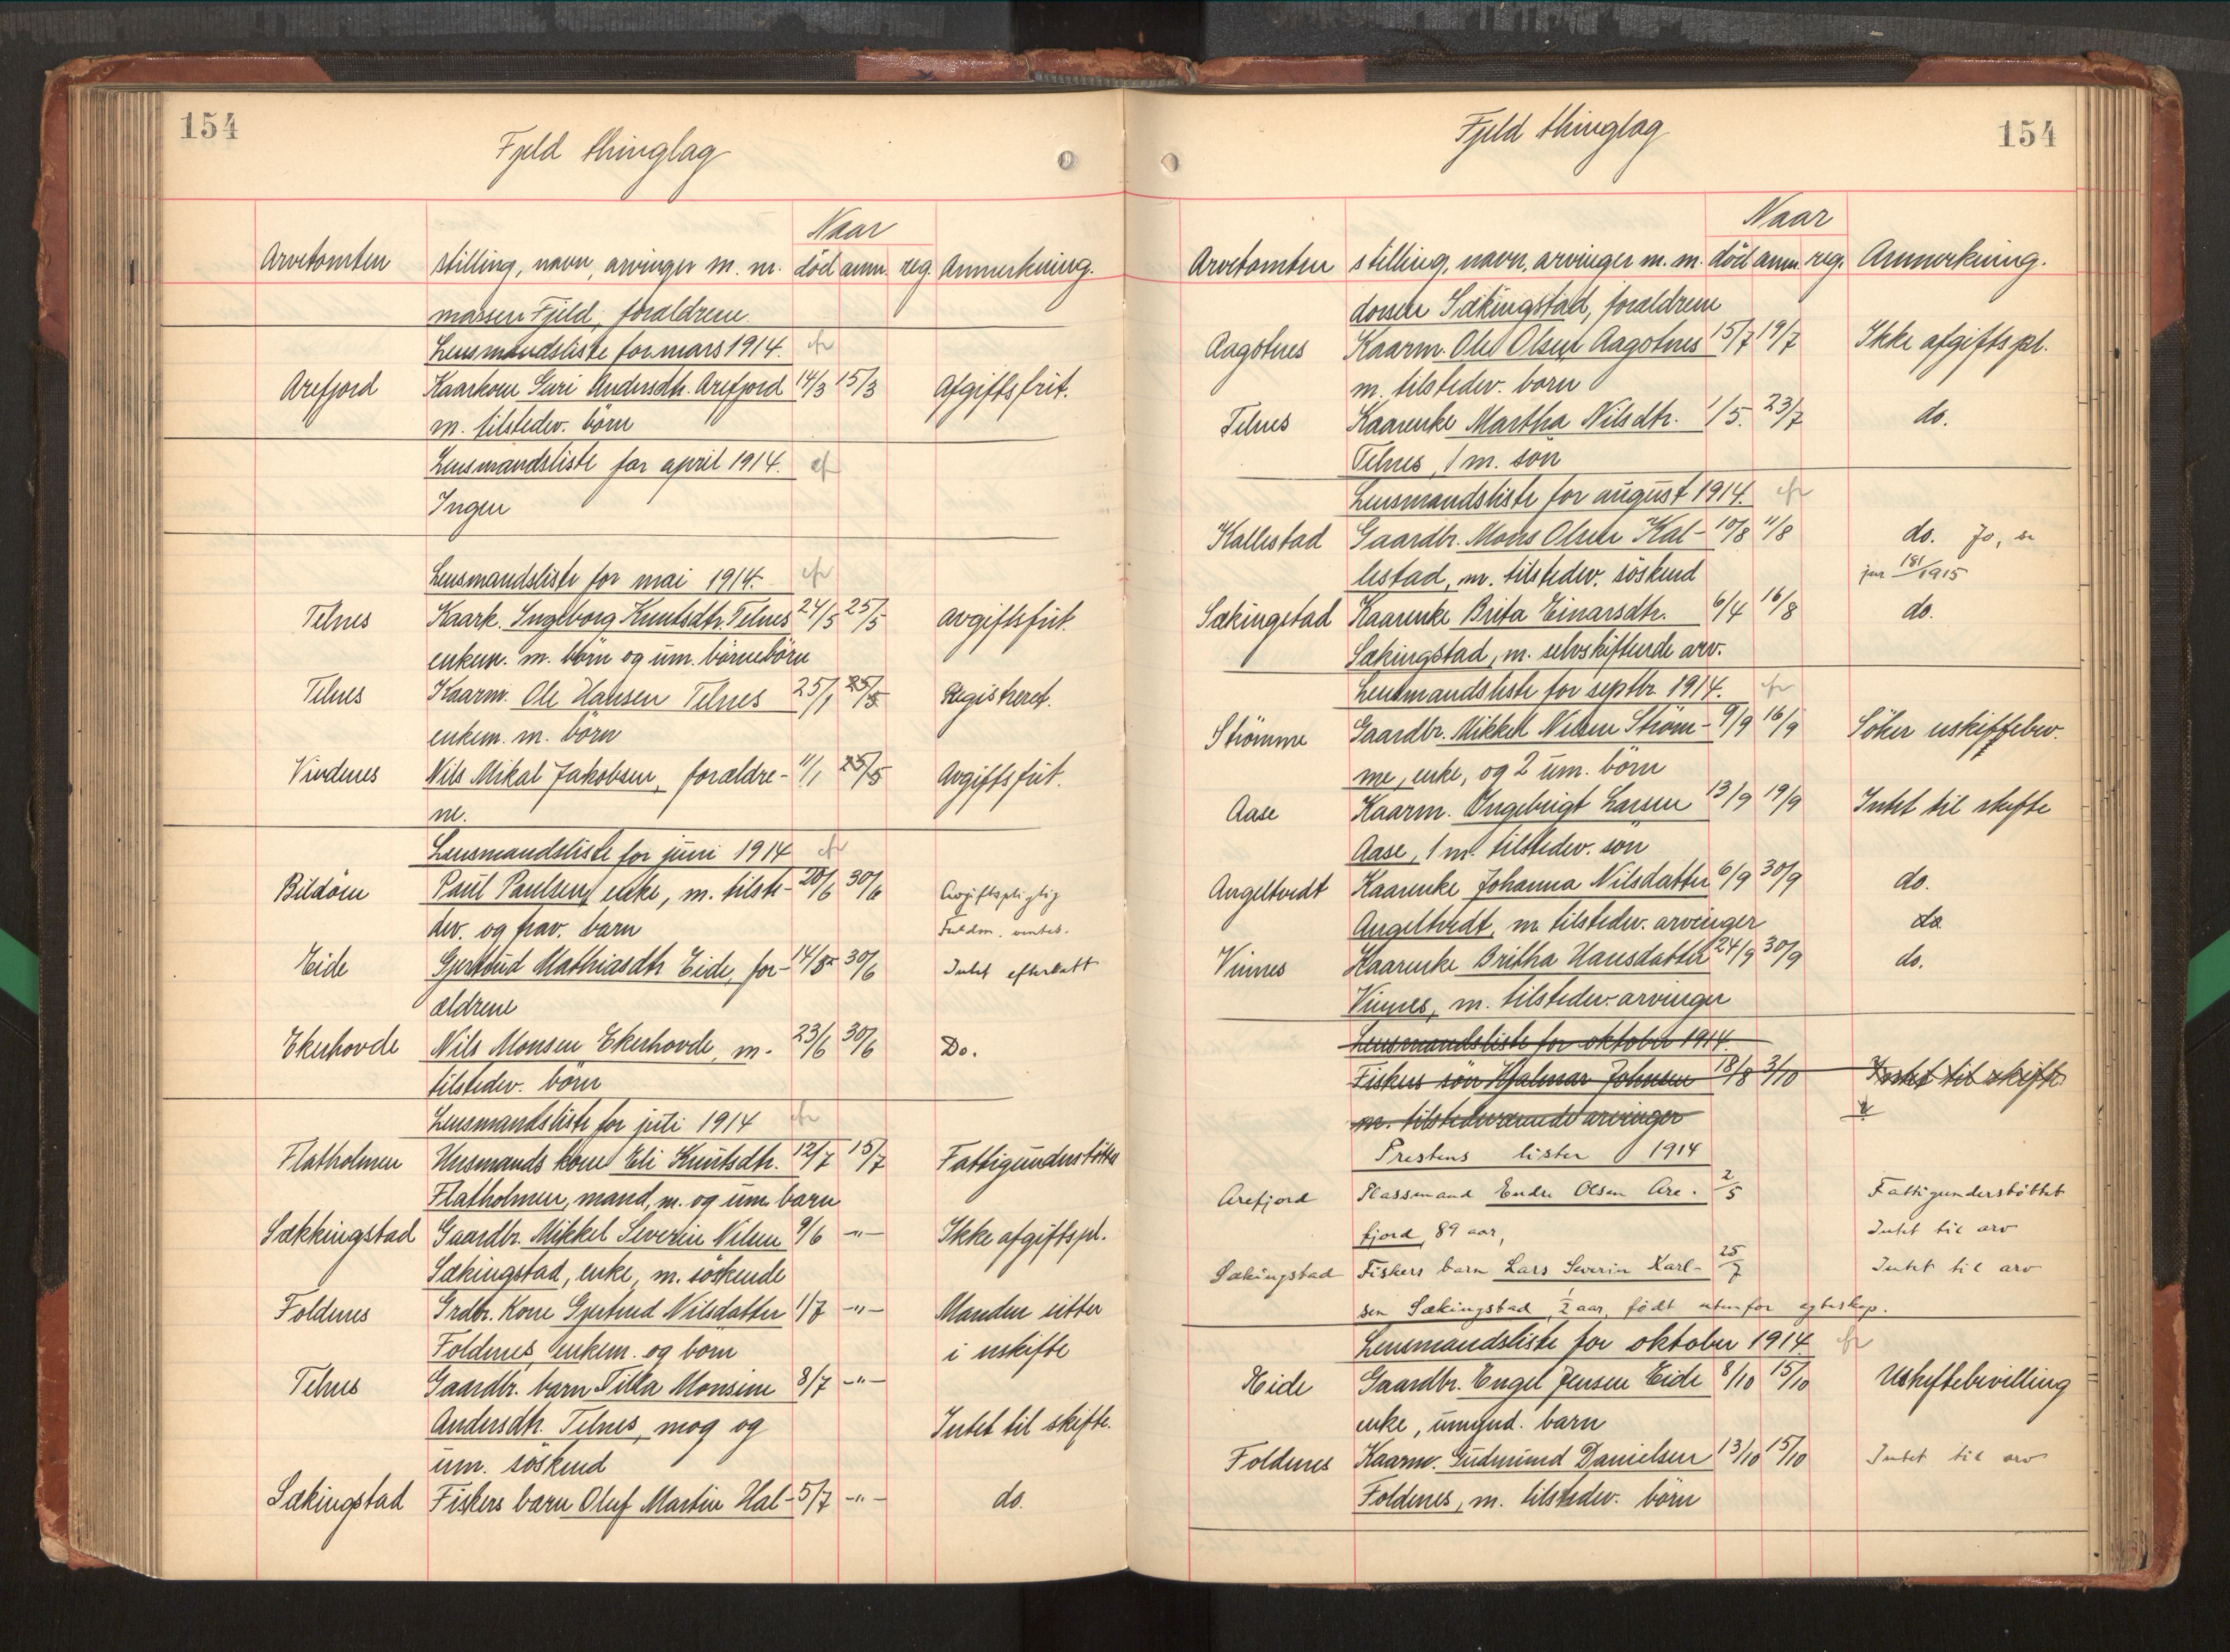 154
Fjeld thinglag
Naar
Arvetomten stilling, navn, arvinger m. m. död anm. reg. Anmerkning.
massen Fjeld, forældrene.
Lensmandsliste for mars 1914.
Arefjord Kaarkone Guri Andersdtr. Arefjord 14/3 15/3 Afgiftsfrit.
m. tilstedev. börn
Lensmandsliste for april 1914.
Ingen
Lensmandsliste for mai 1914.
Telnes Kaark. Ingeborg Knutsdtr. Telnes 24/5 25/5 Avgiftsfrit.
enkem. m. börn og um. börnebörn
Telnes Kaarm. Ole Hansen Telnes 25/1 25/5 Registreret.
enkem. m. börn
Vindenes Nils Mikal Jakobsen, forældre- 11/1 25/5 Avgiftsfrit.
ne.
Lensmandsliste for juni 1914
Bildöen Paul Paulsen, enke, m. tilste- 20/6 30/6 Avgiftspligtig
dev. og frav. barn
Eide Gjertrud Mathiasdtr Eide, for- 14/5 30/6 Intet efterlatt
ældrene
Ekerhovde Nils Monsen Ekerhovde, m. 23/6 30/6 Do.
tilstedev. börn
Lensmandsliste for juli 1914
Flatholmen Husmands kone Eli Knutsdtr. 12/7 15/7 Fattigunderstöttet
Flatholmen, mand, m. og um. barn
Sækkingstad Gaardbr. Mikkel Severin Nilsen 9/6 -"- Ikke afgiftspl.
Sækingstad, enke, m. söskende
Foldenes Grdbr. Kone Gjertrud Nilsdatter 1/7 -"- Manden sitter
Foldenes, enkem. og börn i uskifte
Telnes Gaardbr. barn Tilla Monsine 8/7 -"-
Andersdtr. Telnes, mog og Intet til skifte.
um. söskend
Sækingstad Fiskers barn Oluf Martin Hal- 5/7 -"- do.
154
Fjeld thinglag
Naar
Arvetomten stilling, navn, arvinger m. m. död anm. reg. Anmerkning.
dorsen Sækingstad, forældrene
Aagotnes Kaarm. Ole Olsen Aagotnes 15/7 19/7 Ikke afgiftspl.
m. tilstedev. börn
Telnes Kaarenke Martha Nilsdtr. 1/5. 23/7 do.
Telnes, 1 m. sön
Lensmandsliste for august 1914.
Kallestad Gaardbr. Mons Olsen Kal- 10/8 11/8 do. Jo, se
lestad, m. tilstedev. söskend jnr 181/1915
Sækingstad Kaarenke Brita Einarsdtr. 6/4 16/8 do.
Sækingstad, m. selvskiftende arv.
Lensmandsliste for septbr. 1914.
Strömme Gaardbr. Mikkel Nilsen Ström- 9/9 16/9 Söker uskiftebev.
me, enke, og 2 um. börn
Aase Kaarm. Ingebrigt Larsen 13/9 19/9 Intet til skifte
Aase, 1 m. tilstedev. sön
Angeltvedt Kaarenke Johanna Nilsdatter 6/9 30/9 do.
Angeltvedt, m. tilstedev. arvinger do
Vinnes Kaarenke Britha Hansdatter 24/9 30/9 do.
Vinnes, m. tilstedev. arvinger
Lensmandsliste for oktober 1914.
Fiskers sön Hjalmar Johnsen 18/8 3/10 Intet til skifte
m. tilstedeværende arvinger
Prestens lister 1914
Arefjord Plassmand Endre Olsen Are- 2/5 Fattigunderstöttet
fjord, 89 aar, Intet til arv
Sækingstad Fiskers barn Lars Severin Karl- 25/7 Intet til arv
sen Sækingstad, 1/2 aar, födt utenfor egteskap.
Lensmandsliste for oktober 1914.
Eide Gaardbr. Engel Jensen Eide 8/10 15/10 Uskiftebevilling
enke, umynd. barn
Foldenes Kaarm. Gudmund Danielsen 13/10 15/10 Intet til arv
Foldenes, m. tilstedev. börn